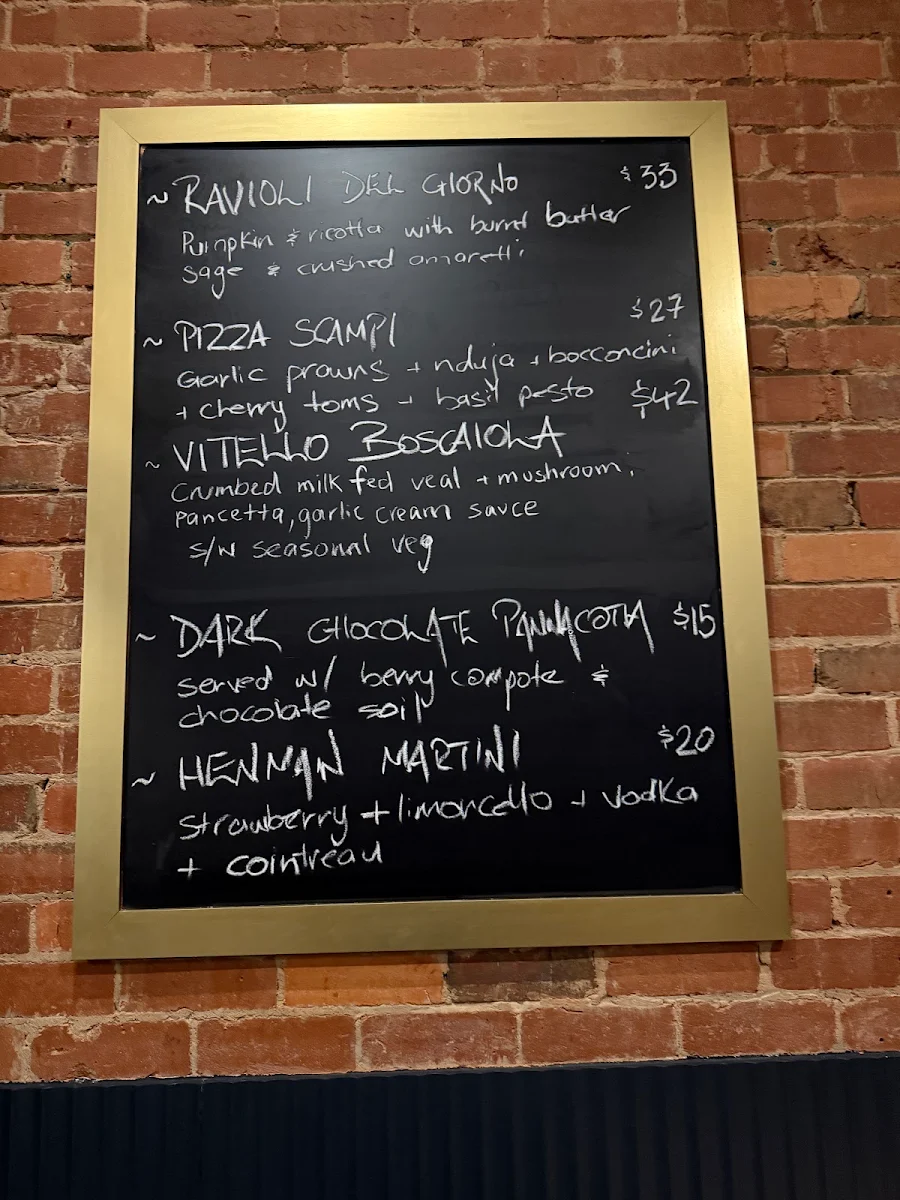 ~ RAVIOLI DEL GIORNO $33
Pumpkin & ricotta with burnt butter
sage & crushed amaretti
~ PIZZA SCAMPI $27
Garlic prawns + nduja + bocconcini
+ cherry toms + basil pesto
~ VITELLO BOSCAIOLA $42
Crumbed milk fed veal + mushroom,
pancetta, garlic cream sauce
s/w seasonal veg
~ DARK CHOCOLATE PANNACOTTA $15
served w/ berry compote &
chocolate soil
~ HENMAN MARTINI $20
Strawberry + limoncello + vodka
+ cointreau